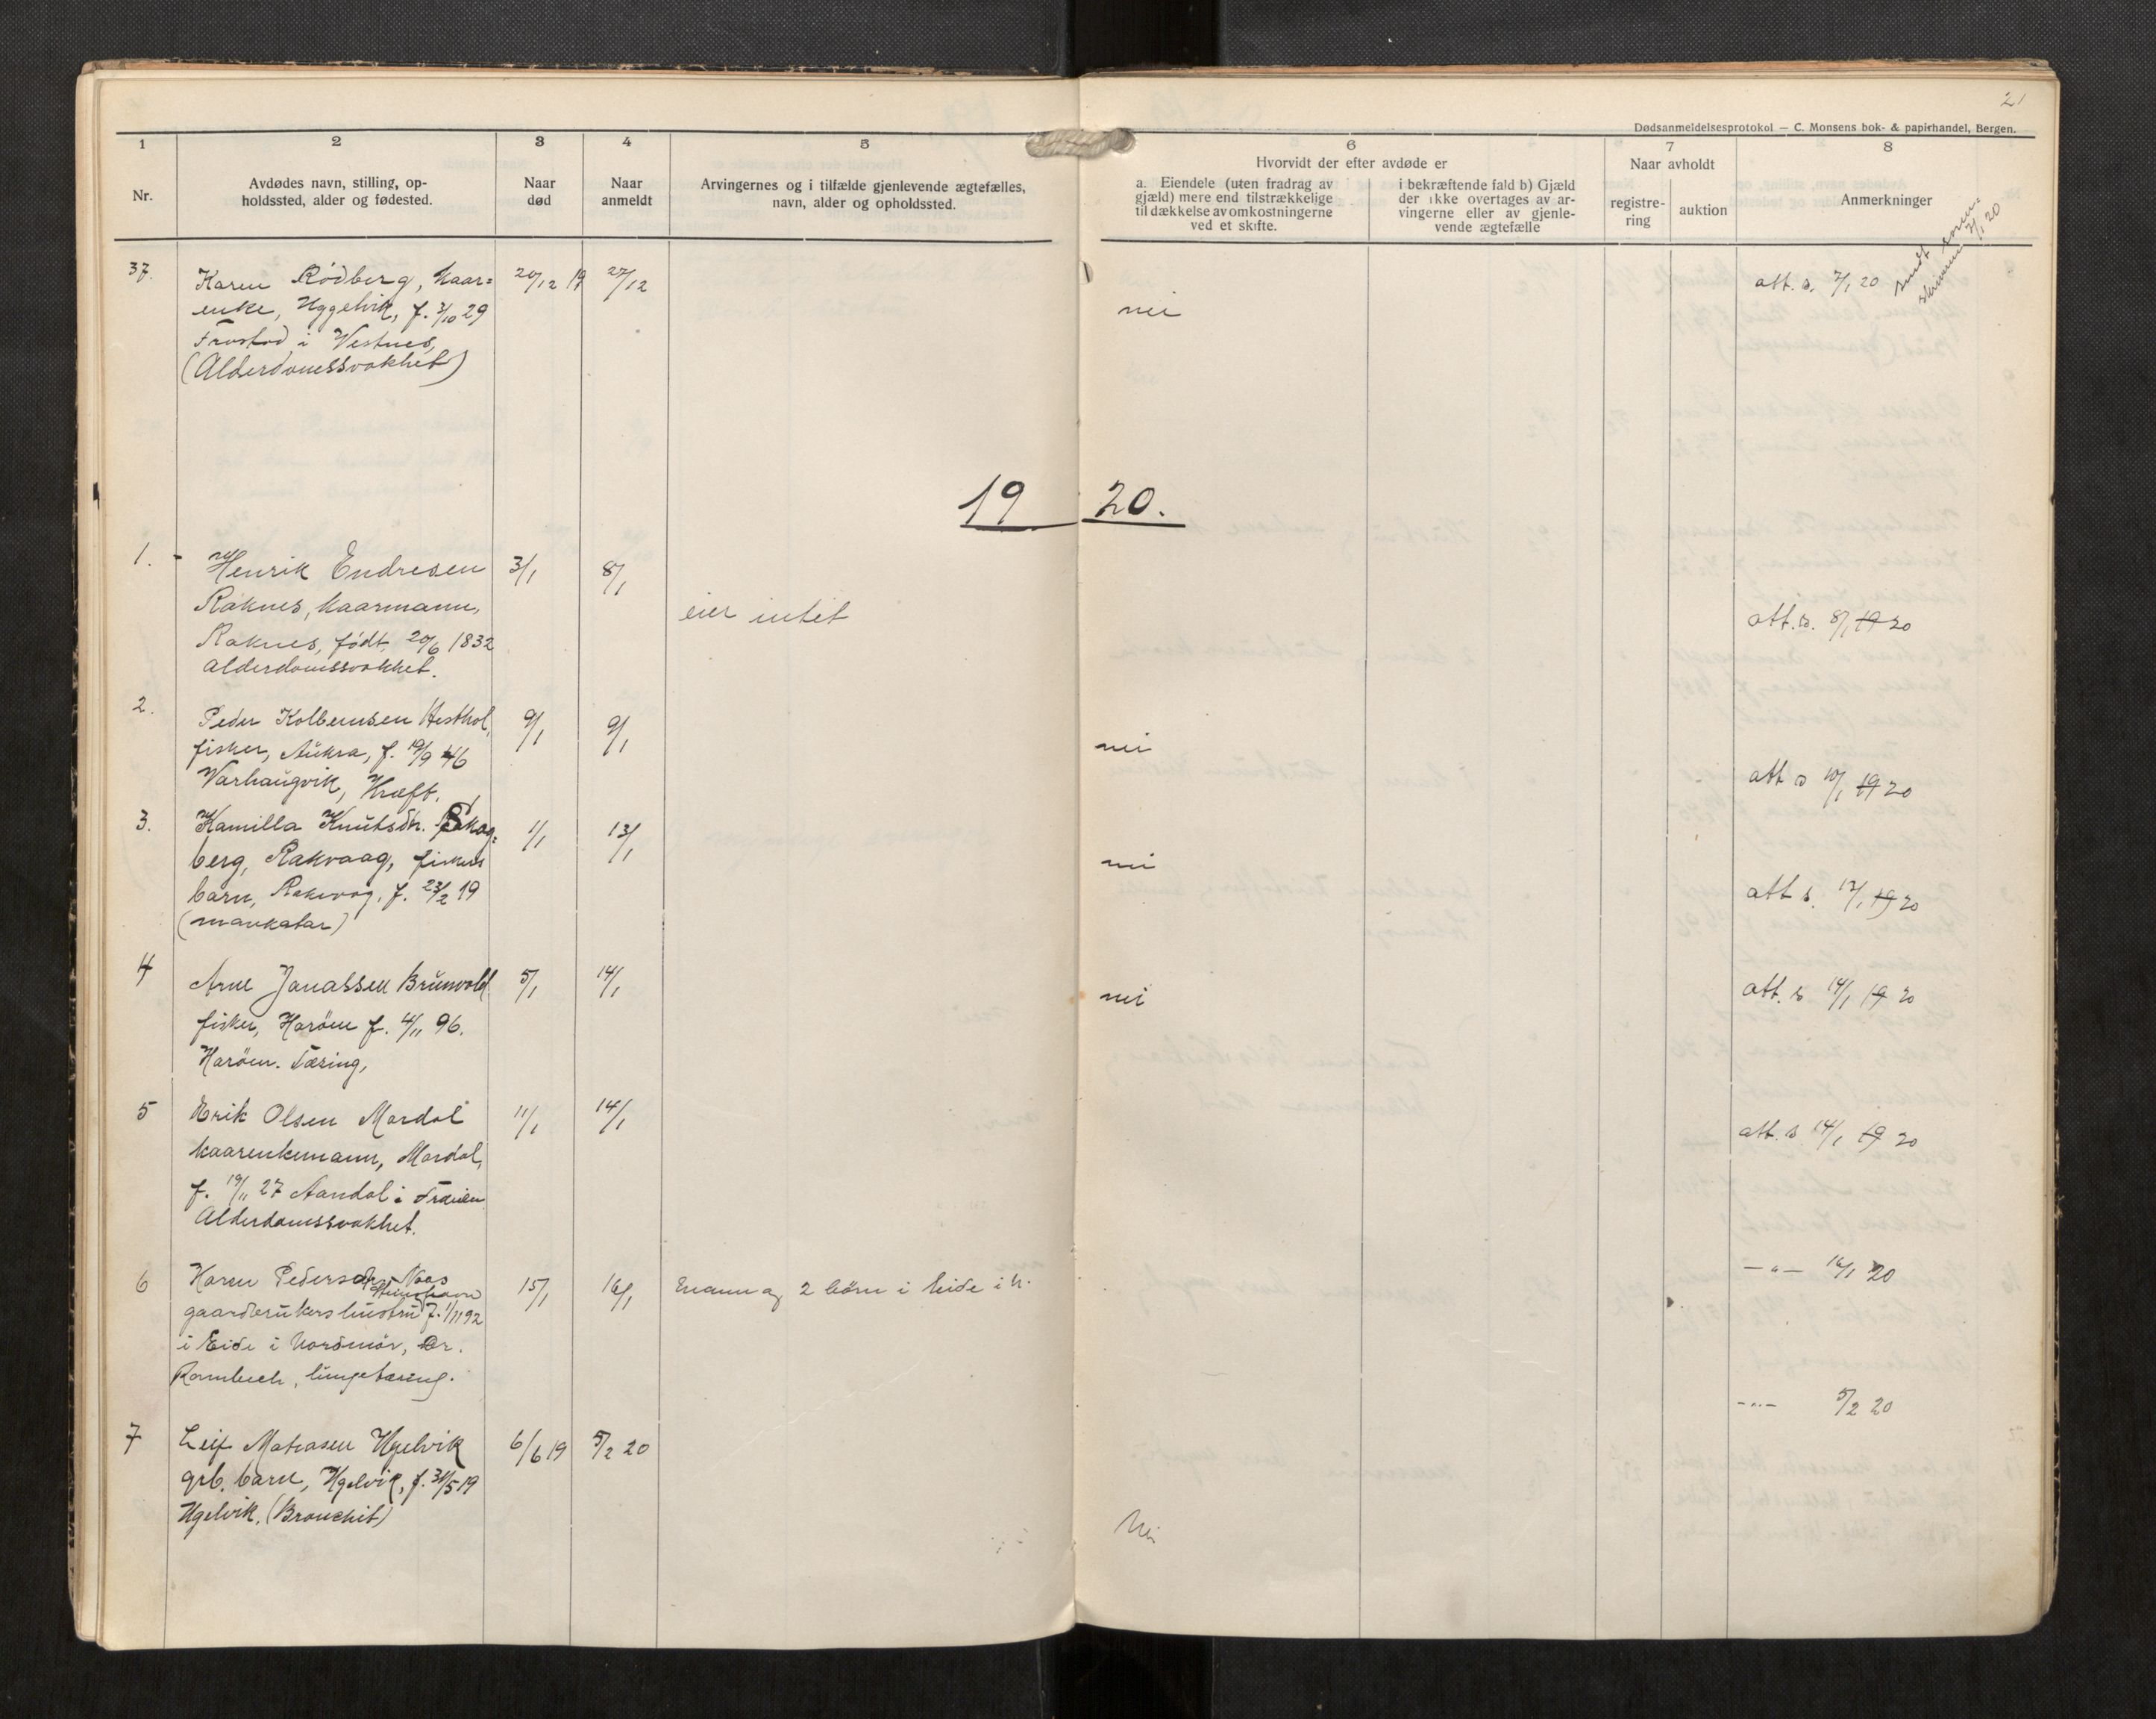 21
Dødsanmeldelsesprotokol — C. Monsens bok- & papirhandel, Bergen.
1
2
3
4
5
6
7
8
Nr.
Avdødes navn, stilling, op-
holdssted, alder og fødested.
Naar
død
Naar
anmeldt
Arvingernes og i tilfælde gjenlevende ægtefælles,
navn, alder og opholdssted.
Hvorvidt der efter avdøde er
a. Eiendele (uten fradrag av
gjæld) mere end tilstrækkelige
til dækkelse av omkostningerne
ved et skifte.
i bekræftende fald b) Gjæld
der ikke overtages av ar-
vingerne eller av gjenle-
vende ægtefælle
Naar avholdt
registre-
ring
auktion
Anmerkninger
37.
Karen Rødberg, kaar=
enke, Uggelvik, f. 3/10 29
Frostad i Vestnes,
(Alderdomssvakhet)
20/12 19
27/12
nei
att. s. 7/1 20
19 20.
1. -
Henrik Endresen
Raknes, kaarmann,
Raknes, født 20/6 1832
Alderdomssvakhet.
3/1
8/1
eier intet
att. s. 8/1 19 20
2.
Peder Kolbensen Hesthol,
fisker, Aukra, f. 19/9 46
Varhaugvik, Kræft.
9/1
9/1
nei
att s 10/1 19 20
3.
Kamilla Knutsdtr. Skog=
berg, Rakvaag, fiskers
barn, Rakvag, f. 23/2 19
1/1
13/1
nei
att s. 13/1 19 20
4
Arne Jonassen Brunvold
fisker, Harøen f. 4/11 96.
Harøen. Tæring,
5/1
14/1
nei
att. s 14/1 19 20
5
Erik Olsen Mordal
kaarenkemann, Mordal,
f. 19/11 27 Aandal i
Alderdomssvakhet.
11/1
14/1
att. s 14/1 19 20
6
Karen Naas
gaardbrukers hustru f. 1/11 92
i Eide i Nordmør, Dr.
lungetæring.
15/1
16/1
Mann og 2 børn i Eide i N.
—"— 16/1 20
7
Leif Matiasen Ugelvik
grb. barn, Ugelvik, f. 31/5 19
Ugelvik. (Bronchit)
6/6 19
5/2 20
Nei
-"- 5/2 20